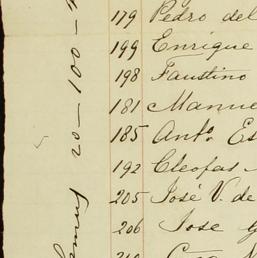 179 Pedro del
199 Enrique
198 Faustino
181 Manue
185 Anto. Es
192 Cleofas
205 José V. de
206 Jose G
20-100-